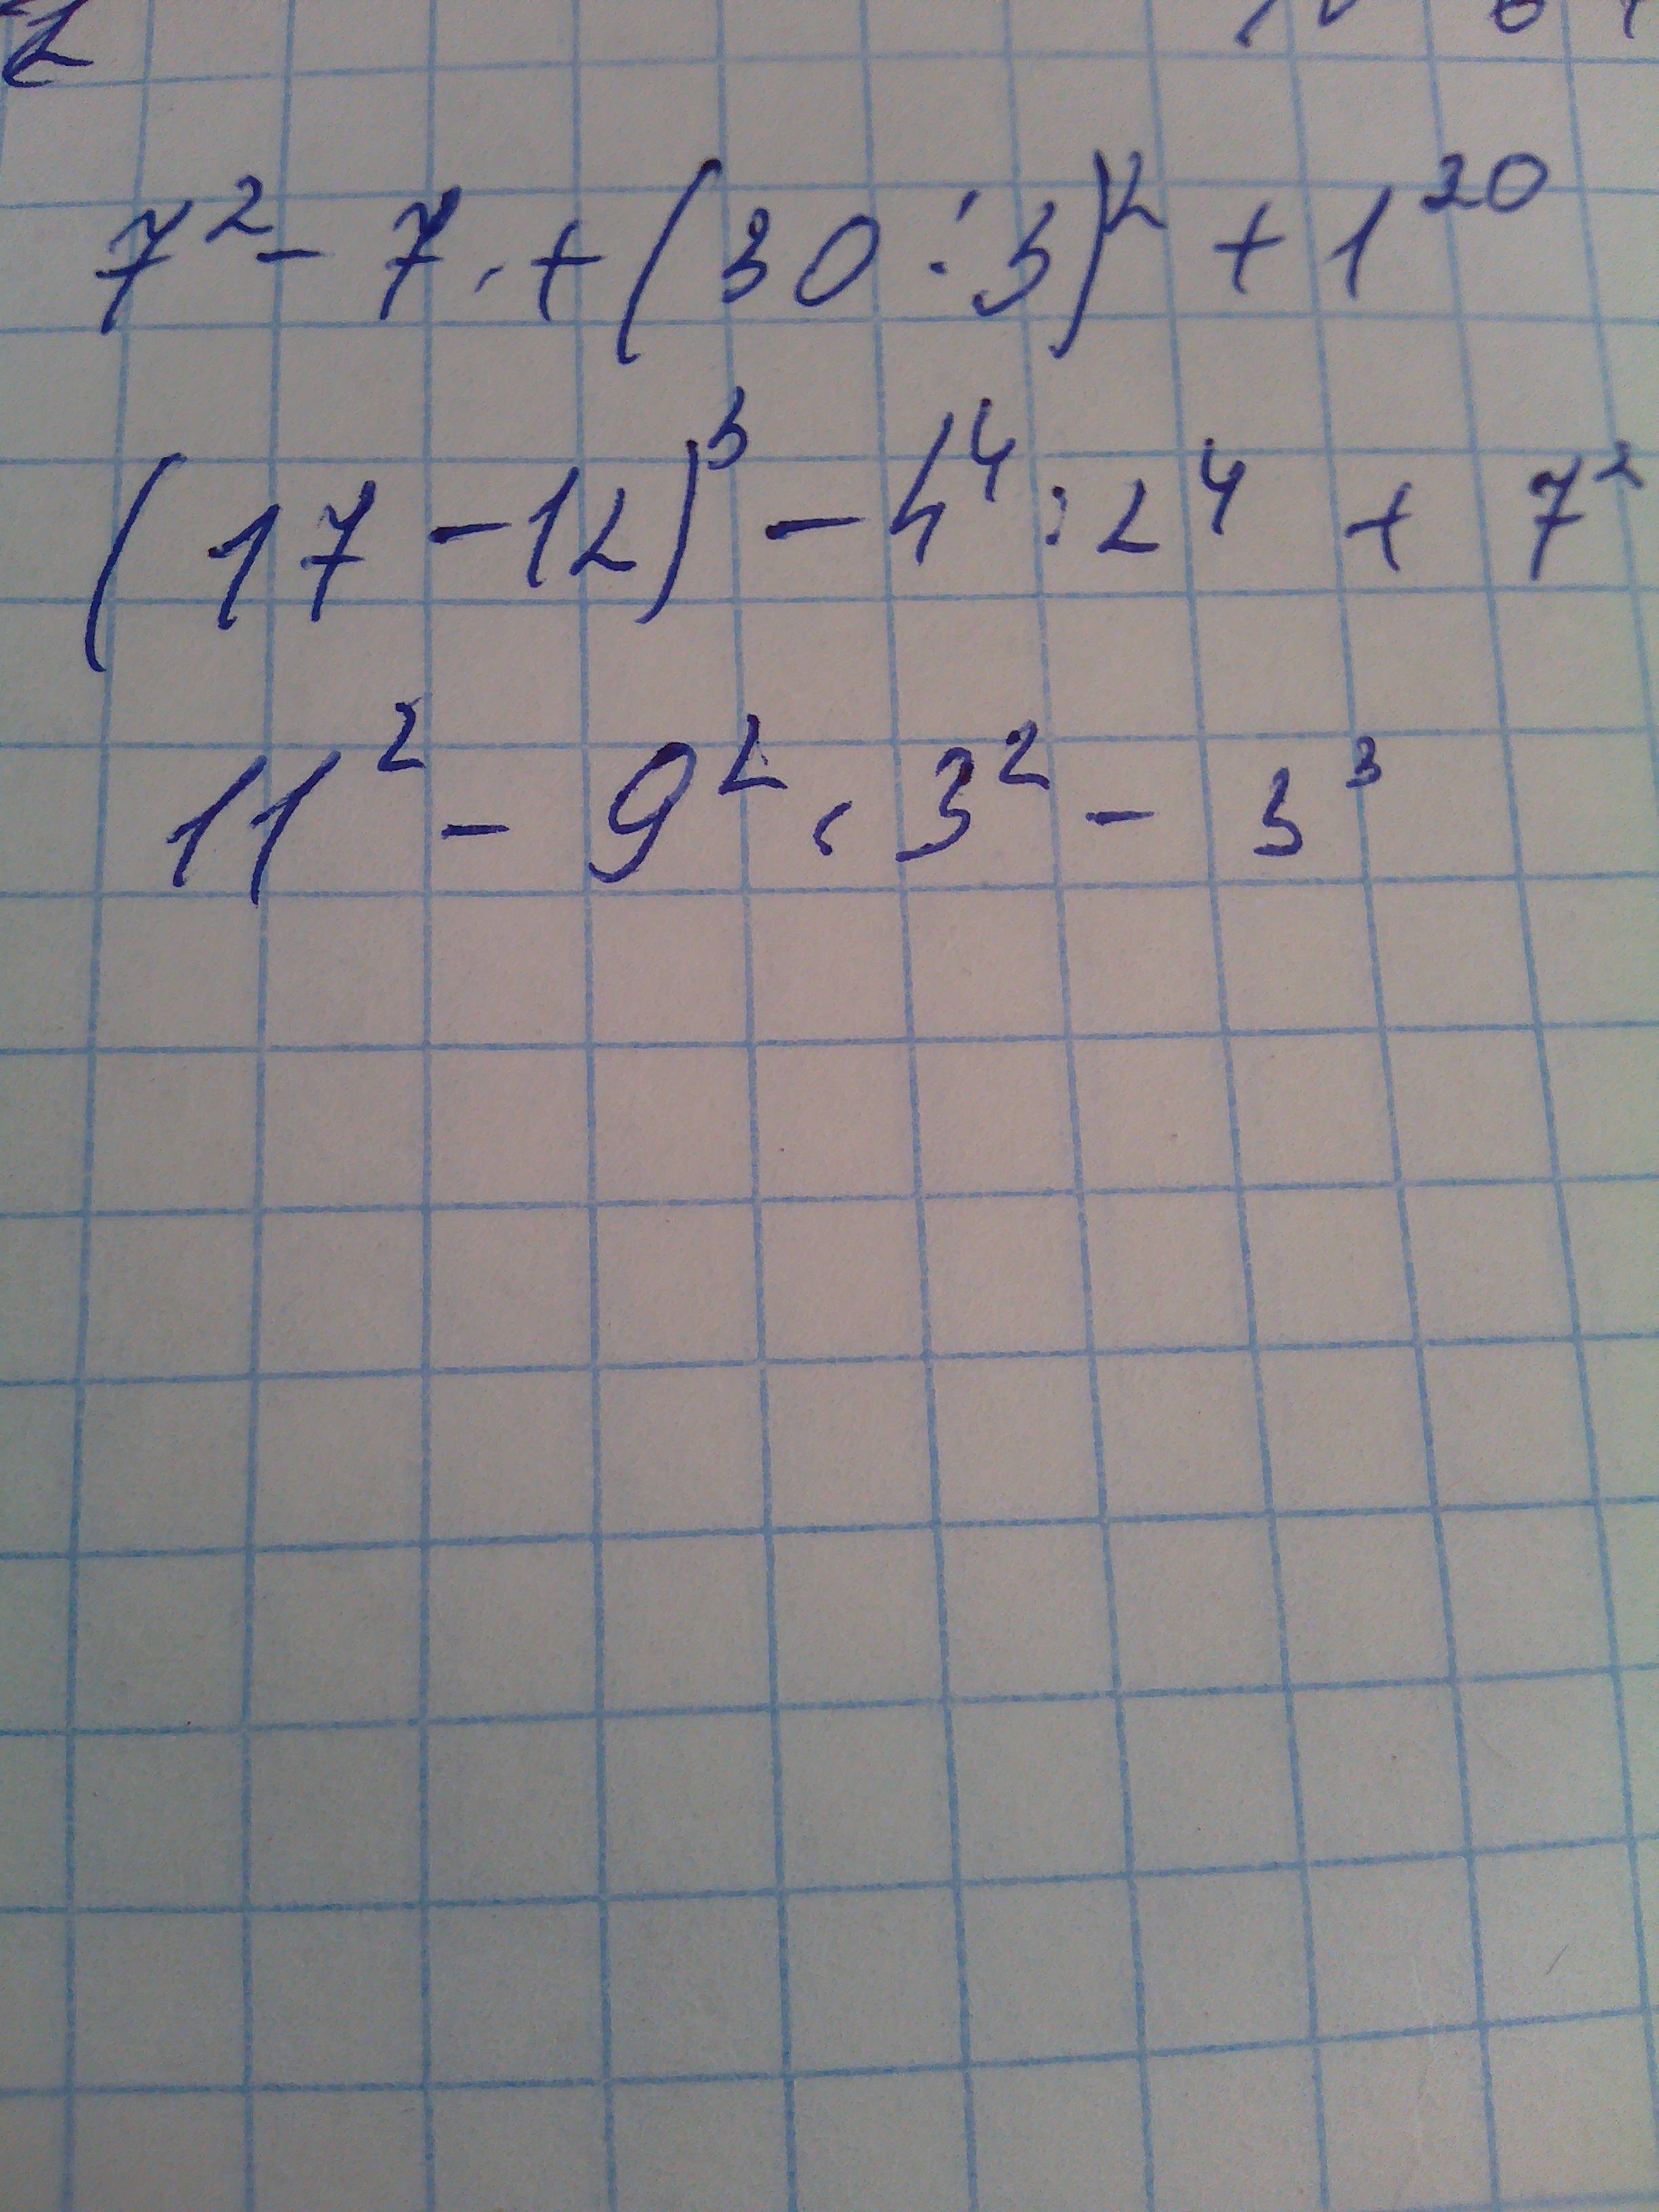 7² - 7 · + (30 : 3)² + 1²⁰
(17 - 12)³ - 4⁴ : 2⁴ + 7²
11² - 9² · 3² - 3³